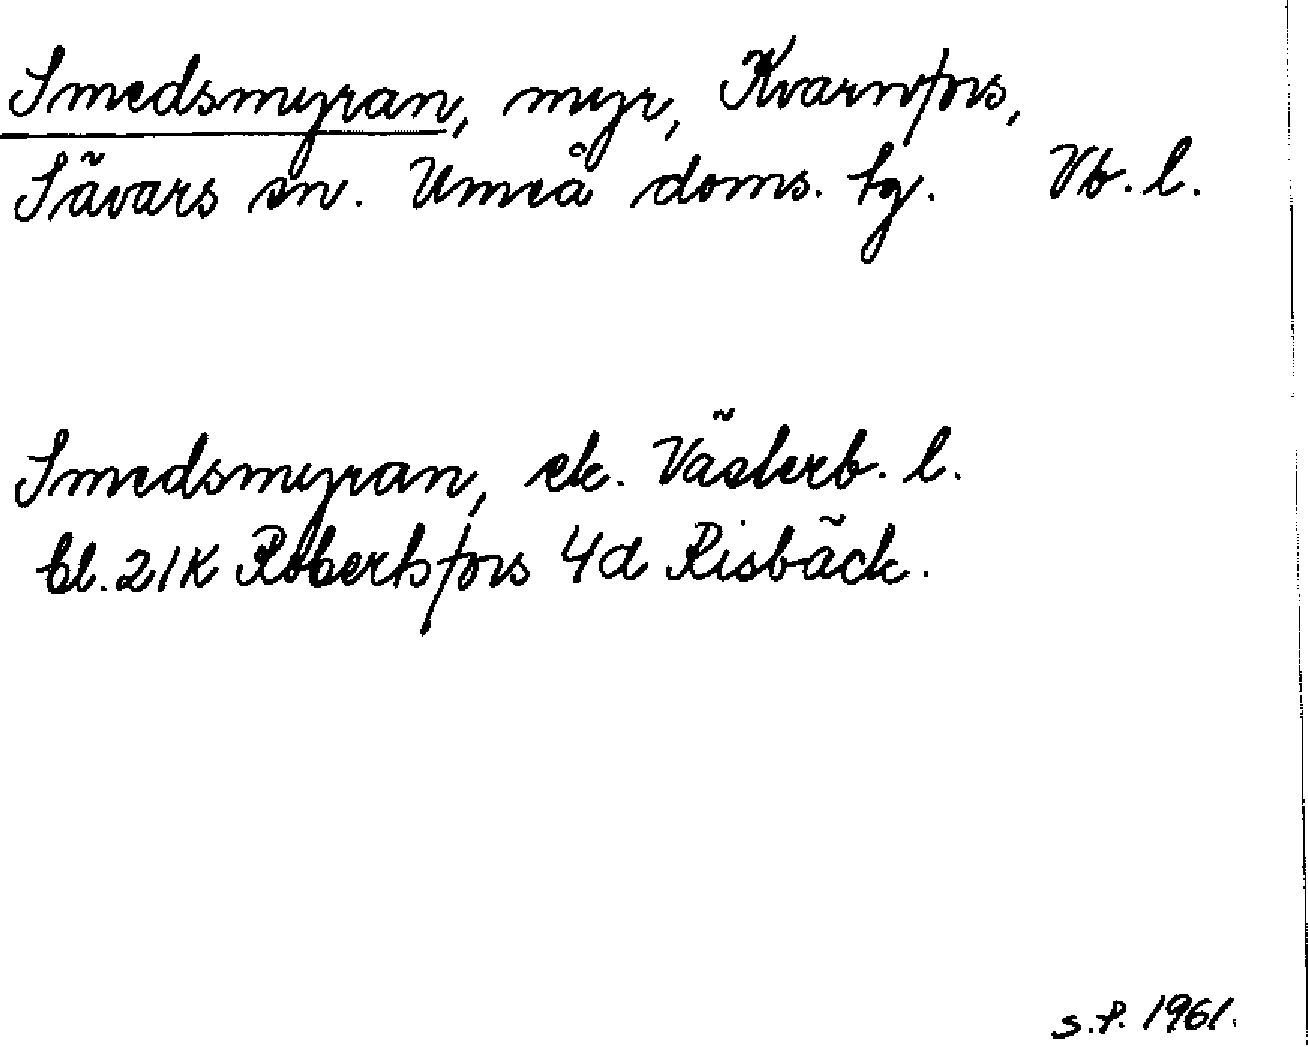 Smedsmyran, myr, Kvarnfors,
Sävars sn. Umeå doms. tg. Vb. l.
Smedsmyran, ek. Västerb. l.
bl. 21K Robertsfors 4d Risbäck.
S.P. 1961.